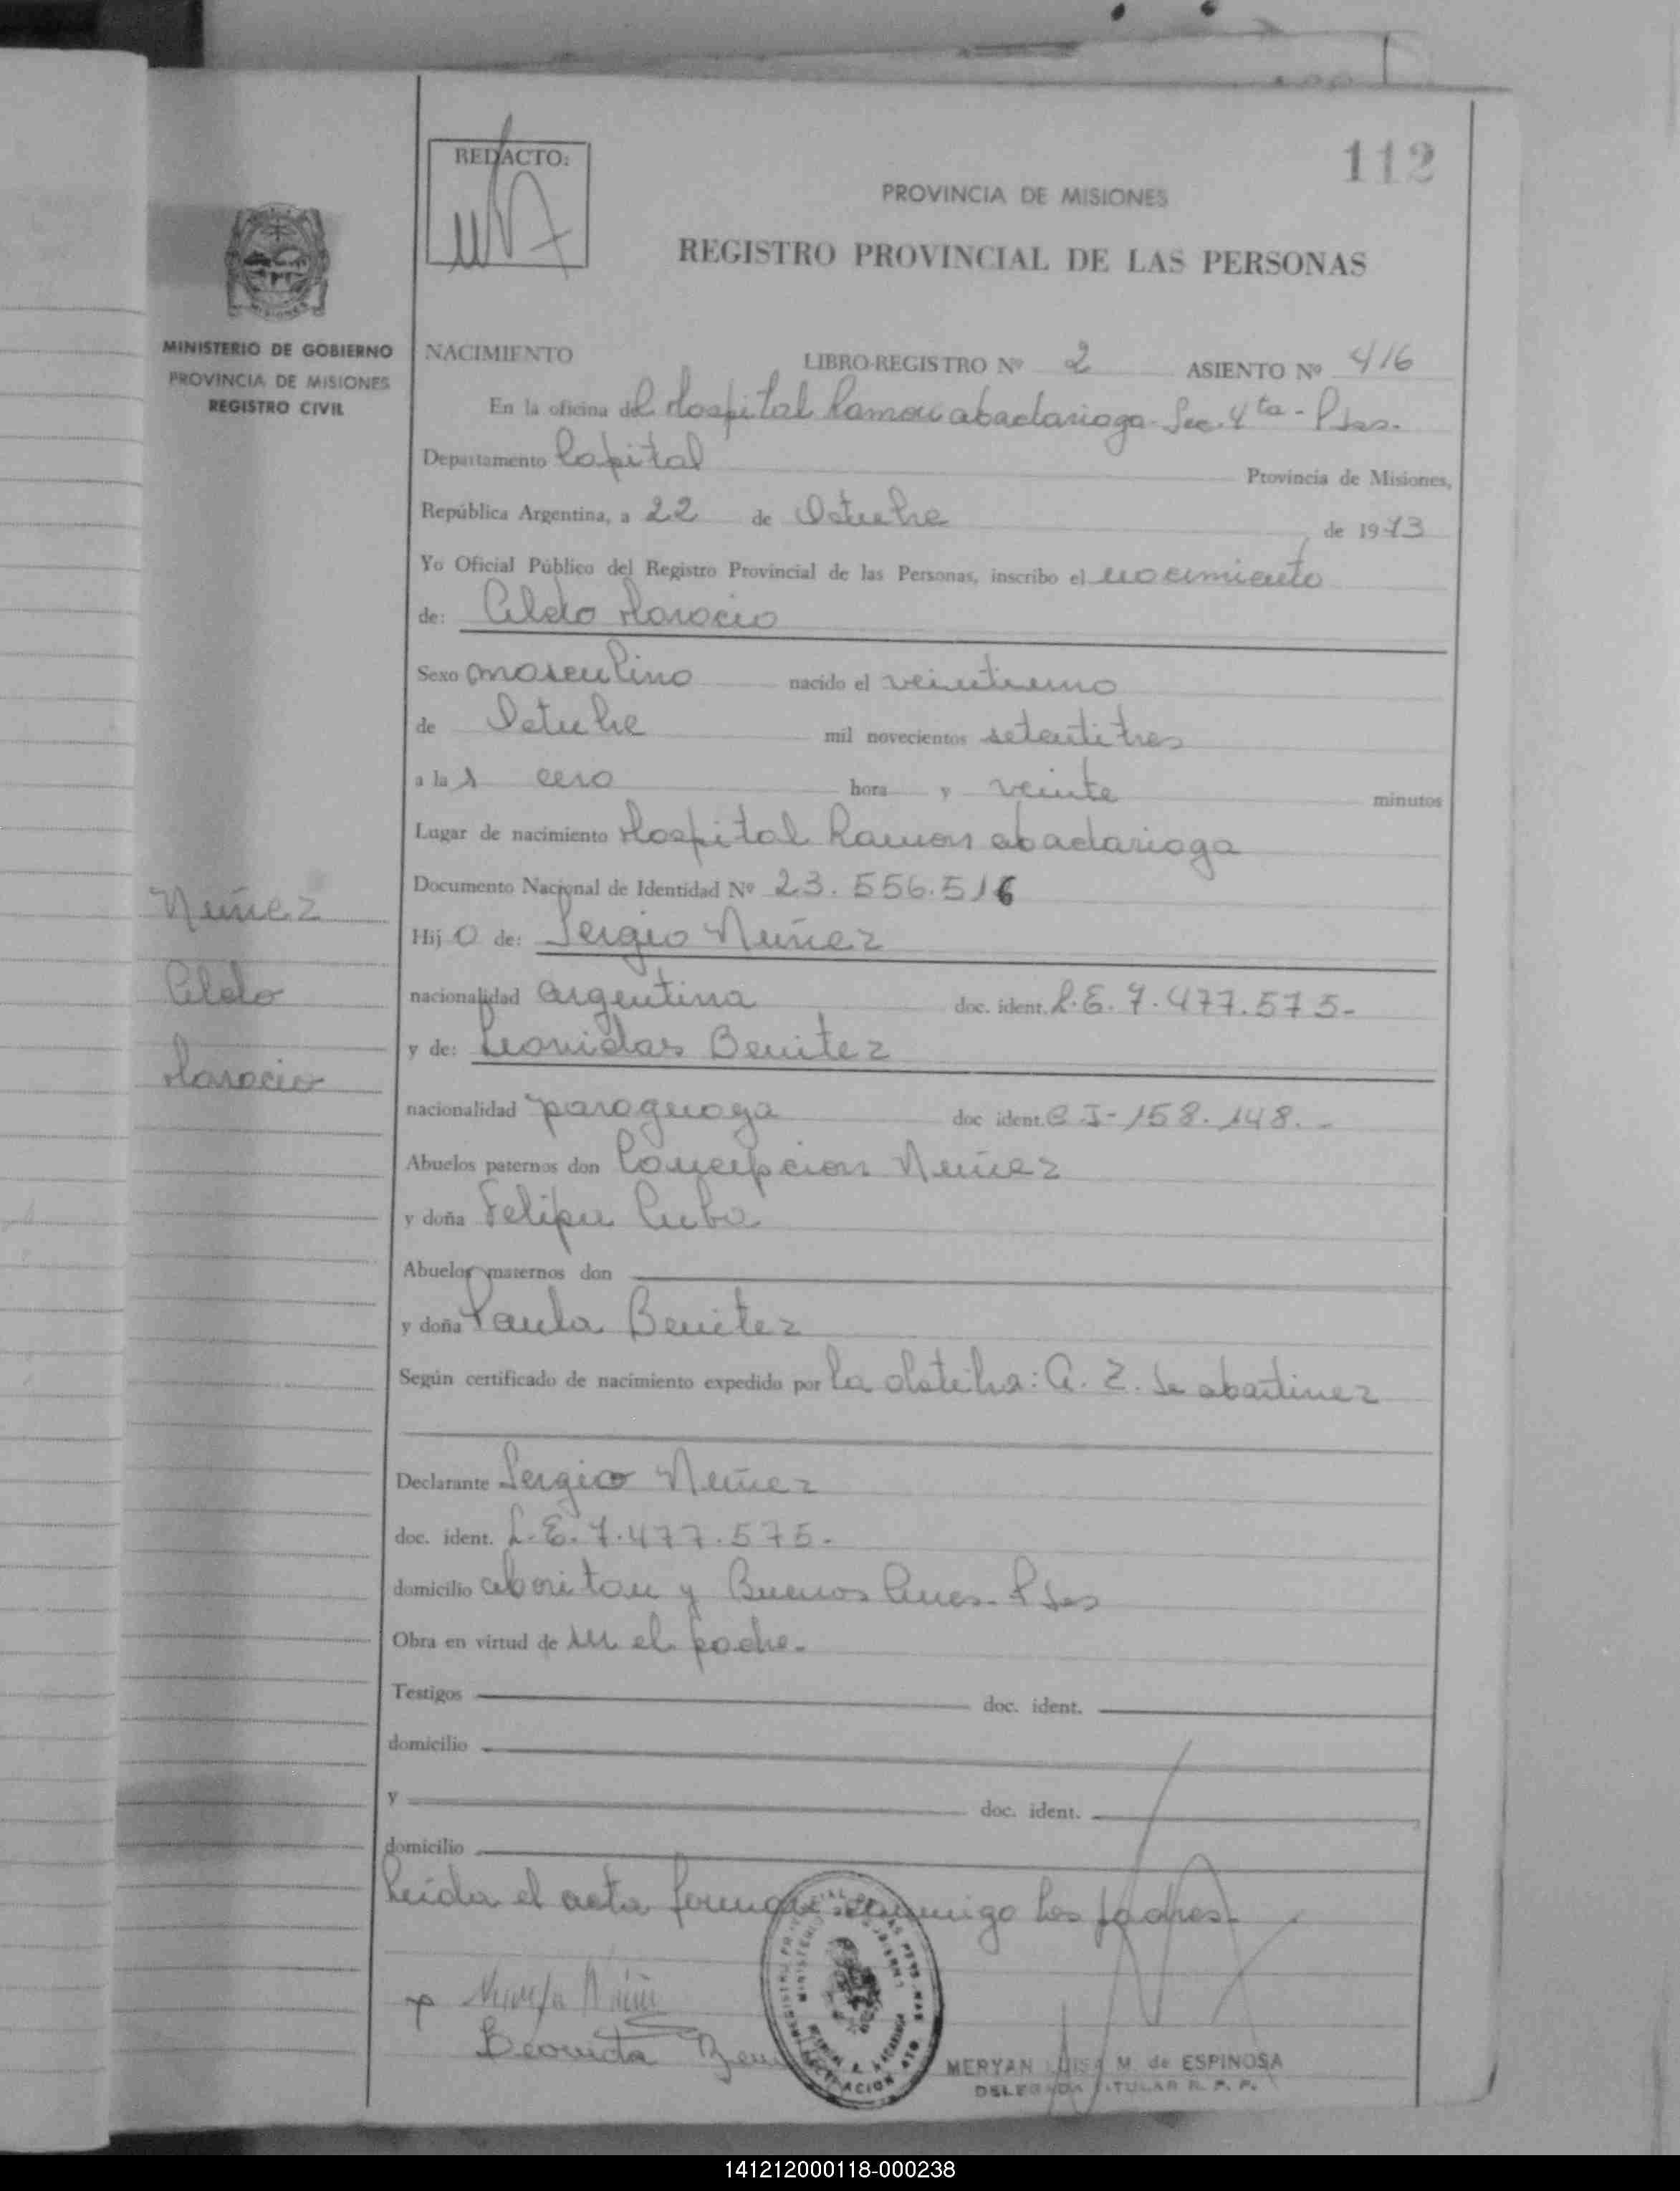 112
REDACTO:
PROVINCIA DE MISIONES
REGISTRO PROVINCIAL DE LAS PERSONAS
MINISTERIO DE GOBIERNO
PROVINCIA DE MISIONES
REGISTRO CIVIL
NACIMIENTO LIBRO-REGISTRO Nº 2 ASIENTO Nº 416
En la oficina del Hospital Ramon Madariaga - Sec. 4ta - Pdas.
Departamento Capital Provincia de Misiones,
República Argentina, a 22 de Octubre de 1973
Yo Oficial Público del Registro Provincial de las Personas, inscribo el nacimiento
de: Aldo Horacio
Sexo masculino nacido el veintiuno
de Octubre mil novecientos setentitres
a las cero hora y veinte minutos
Lugar de nacimiento Hospital Ramon Madariaga
Documento Nacional de Identidad Nº 23.556.516
Hijo de: Sergio Nuñez
nacionalidad Argentina doc. ident. L.E. 7.477.575-
y de: Leonidas Benitez
nacionalidad paraguaya doc ident. C.I- 158.148.-
Abuelos paternos don Concepcion Nuñez
y doña Felipa Cuba
Abuelos maternos don
y doña Paula Benitez
Según certificado de nacimiento expedido por la obstetra: A. Z. de Martinez
Declarante Sergio Nuñez
doc. ident. L.E. 7.477.575-
domicilio Moritan y Buenos Aires - Pdas
Obra en virtud de ser el padre-
Testigos doc. ident.
domicilio
y doc. ident.
domicilio
Leida el acta firman conmigo los padres-
Nuñez
Aldo
Horacio
MERYAN LUISA M. de ESPINOSA
DELEGADA TITULAR R. P. P.
141212000118-000238